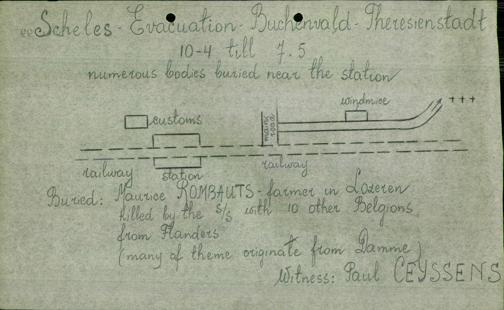 Scheles - Evacuation - Buchenvald - Theresienstadt
10-4 till 7.5
numerous bodies buried near the station
windmice
customs
mains road
railway
station
railway
Buried: Maurice ROMBAUTS - farmer in Lozeren
killed by the S/S with 10 other Belgions
from Flanders
(many of theme originate from Damme)
Witness: Paul CEYSSENS